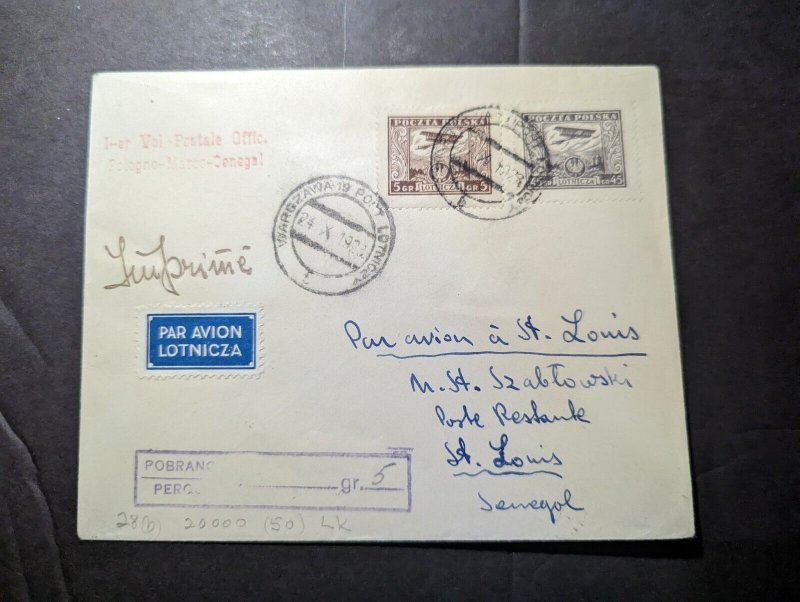 I-er Vol Postale Offic.
Pologne-Maroc-Senegal
POCZTA POLSKA
5 GR LOTNICZA GR 5
POCZTA POLSKA
LOTNICZA GR 45
WARSZAWA 19 PORT LOTNICZY
24 X 19
Imprimé
PAR AVION
LOTNICZA
Par avion à St. Louis
M. St. Szabłowski
Poste Restante
St. Louis
Senegal
POBRANO
PERÇ
gr. 5
28(b) 20000 (50) LK